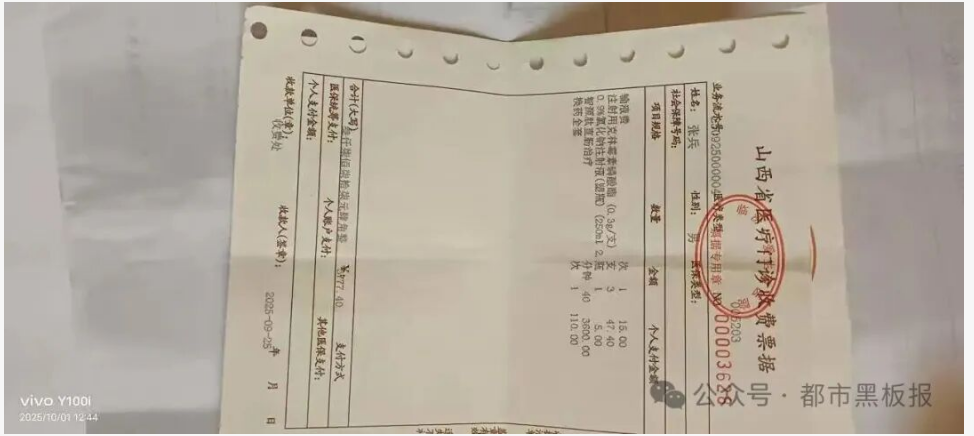 山西省医疗门诊收费票据
NO 00003628
025203
票据专用章
业务流水号:0925000004 医疗类型:
姓名: 张兵 性别: 男 医保类型:
社会保障号码:
项目规格 数量 金额 个人支付金额
输液费 次 1 15.00
注射用克林霉素磷酸酯 (0.3g/支) 支 3 47.40
0.9%氯化钠注射液(塑瓶) (250ml 2. 瓶 1 5.00
智源肽直肠治疗 分钟 40 3600.00
换药全套 次 1 110.00
合计(大写) 叁仟柒佰柒拾柒元肆角整 ¥3777.40 支付方式
医保统筹支付: 个人账户支付: 其他医保支付:
个人支付金额:
收款单位(章): 收费处 收款人(签章): 2025-09-25 年 月 日
vivo Y100i
2025/10/01 12:44
公众号·都市黑板报